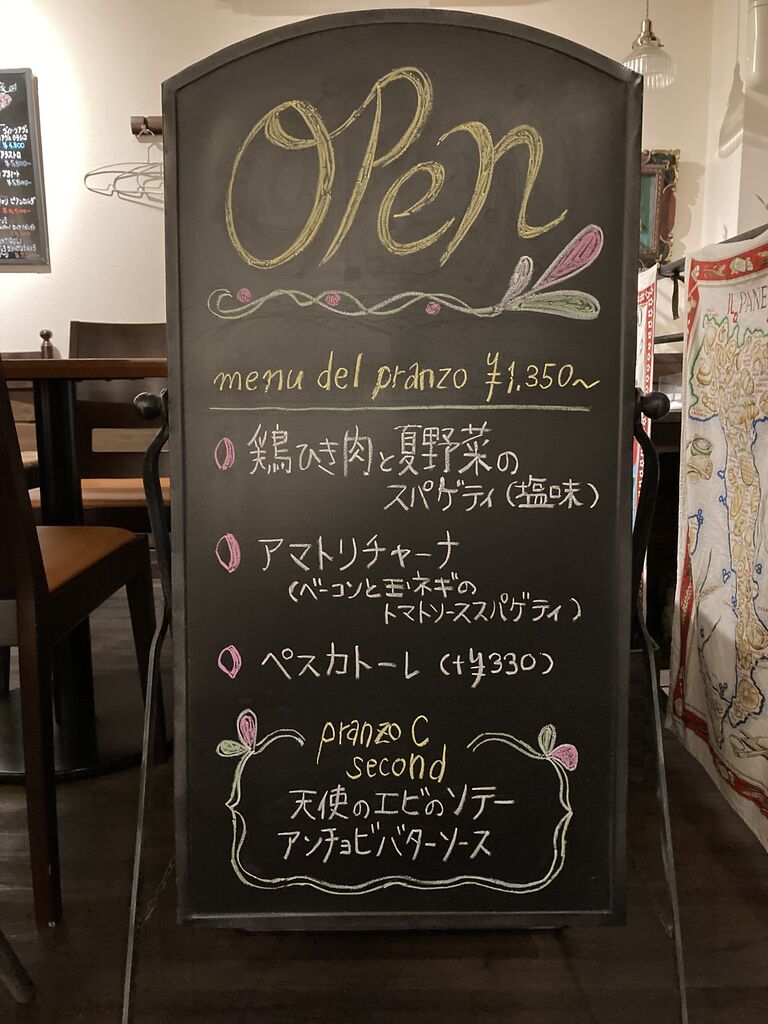 OPen
menu del pranzo ¥1.350～
鶏ひき肉と夏野菜の
スパゲティ(塩味)
アマトリチャーナ
(ベーコンと玉ネギの
トマトソーススパゲティ)
ペスカトーレ(+¥330)
pranzo C
second
天使のエビのソテー
アンチョビバターソース
IL PANE